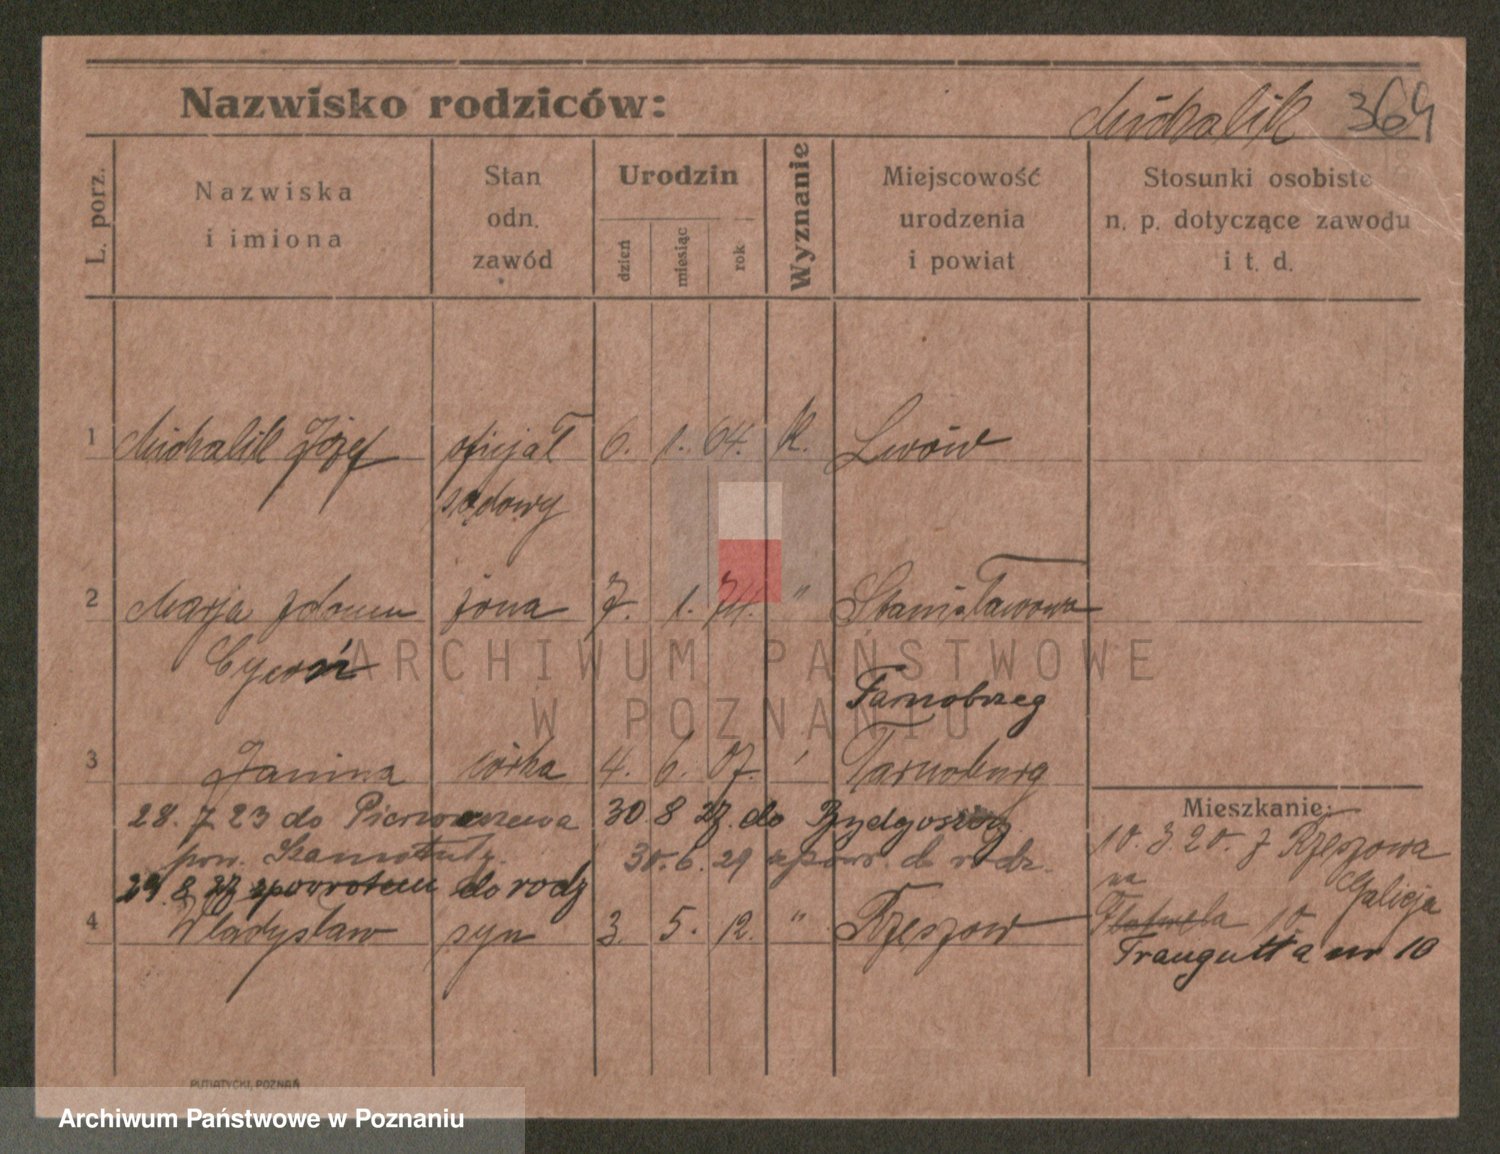 Nazwisko rodziców: Michalik 364
L. porz.
Nazwiska
i imiona
Stan
odn.
zawód
Urodzin
dzień
miesiąc
rok
Wyznanie
Miejscowość
urodzenia
i powiat
Stosunki osobiste
n. p. dotyczące zawodu
i t. d.
1 Michalik Józef oficjał 6. 1. 64. k. Lwów
sądowy
2 Marja z domu żona 7. 1. 74. " Stanisławowa
ARCHIWUM PAŃSTWOWE
W POZNANIU
Tarnobrzeg
3 Janina córka 4. 6. 07. Tarnoburg
28. 7 23 do 30 8 27. do Bydgoszczy
pow. Szamotuły. 30. 6. 29 do rodz.
29. 8. 27 zpowrotem do rodz
4 Władysław syn 3. 5. 12. " Rzeszow
Mieszkanie:
10. 3. 20. z Rzeszowa
na Galicja
10
Traugutta nr 10
PUTIATYCKI, POZNAŃ
Archiwum Państwowe w Poznaniu